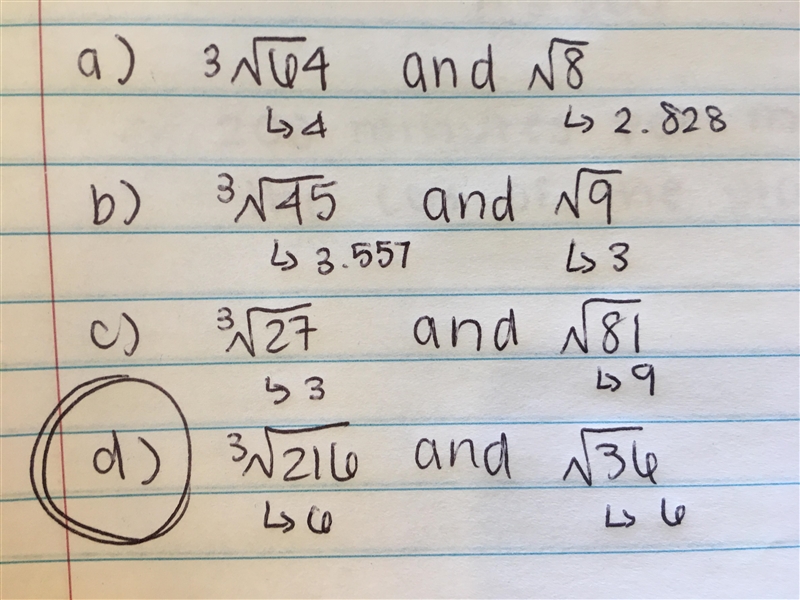 a) ³√64 and √8
↳ 4 ↳ 2.828
b) ³√45 and √9
↳ 3.557 ↳ 3
c) ³√27 and √81
↳ 3 ↳ 9
d) ³√216 and √36
↳ 6 ↳ 6